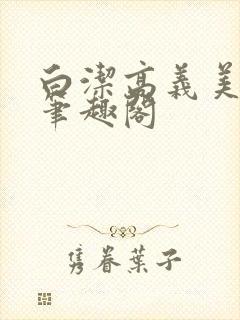 白潔高義美
筆趣閣
隽眷葉子